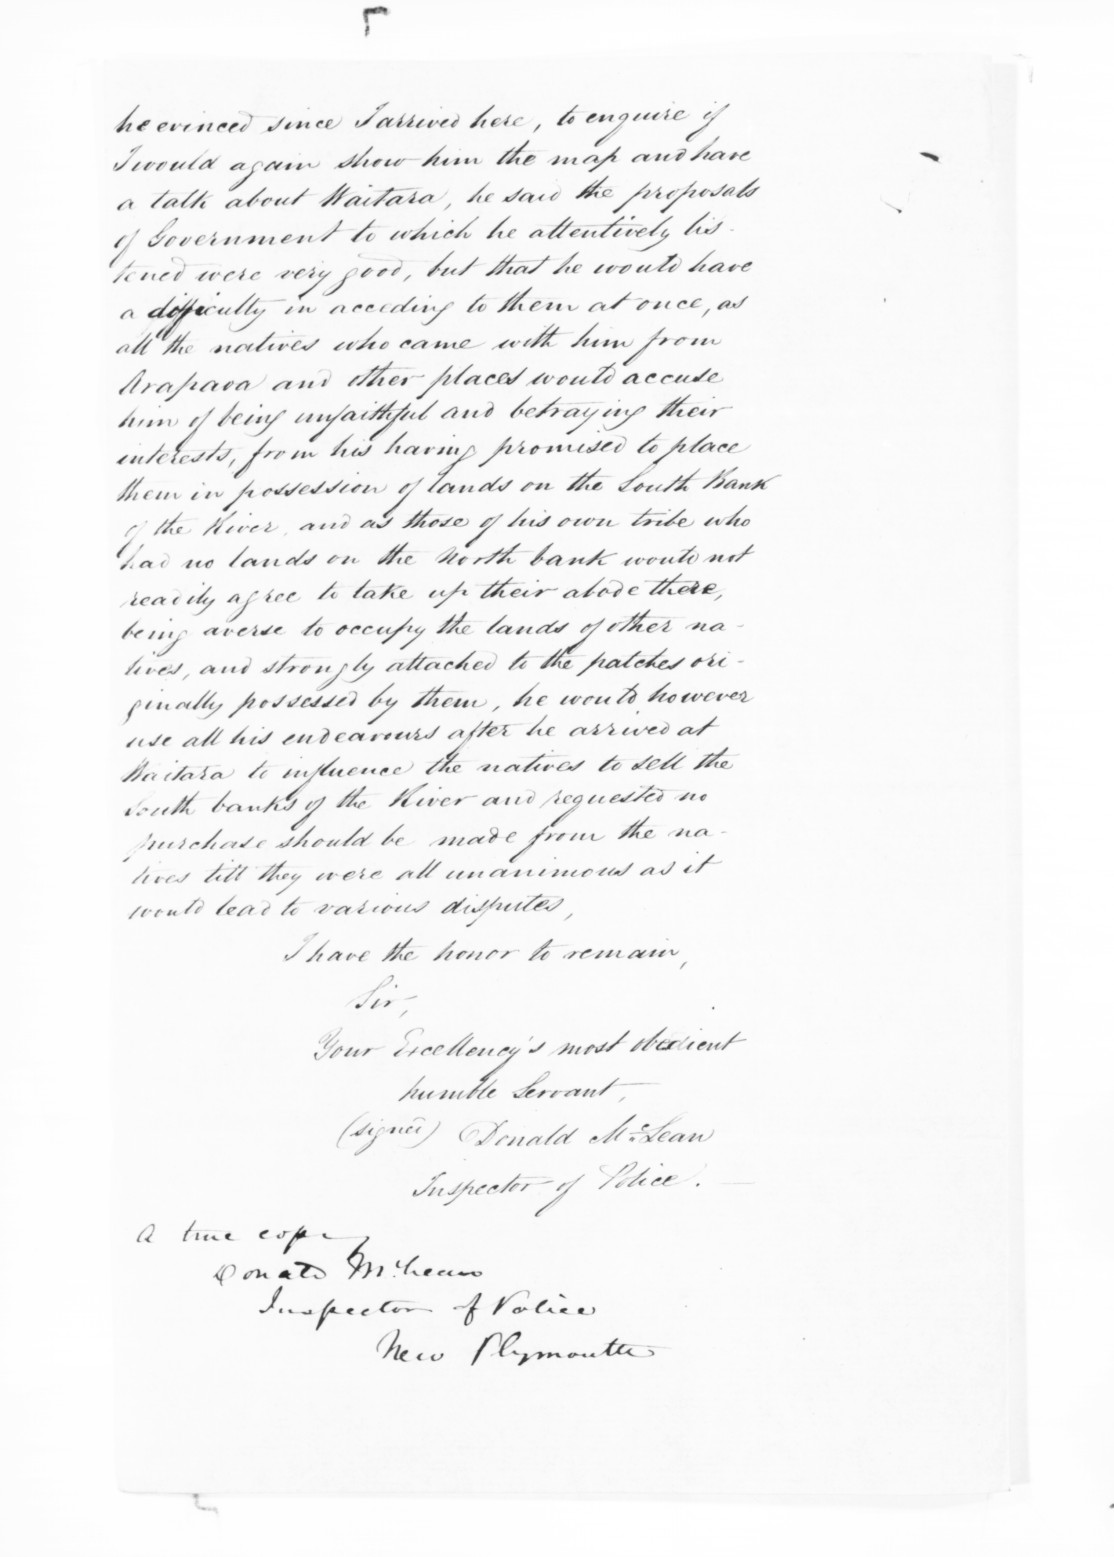 he evinced since I arrived here, to enquire if
I would again show him the map and have
a talk about Waitara, he said the proposals
of Government to which he attentively lis-
tened were very good, but that he would have
a difficulty in acceding to them at once, as
all the natives who came with him from
Arapaoa and other places would accuse
him of being unfaithful and betraying their
interests, from his having promised to place
them in possession of lands on the South Bank
of the River, and as those of his own tribe who
had no lands on the North bank would not
readily agree to take up their abode there,
being averse to occupy the lands of other na-
tives, and strongly attached to the patches ori-
ginally possessed by them, he would however
use all his endeavours after he arrived at
Waitara to influence the natives to sell the
South banks of the River and requested no
purchase should be made from the na-
tives till they were all unanimous as it
would lead to various disputes,
I have the honor to remain,
Sir,
Your Excellency's most obedient
humble Servant,
(signed) Donald McLean
Inspector of Police.
A true copy
Donald McLean
Inspector of Police
New Plymouth